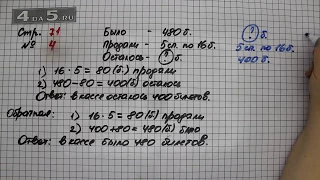 4DA5.RU
Стр. 71
№ 4
Было - 480 б.
Продали - 5 сл. по 16 б.
Осталось - ? б.
1) 16 · 5 = 80 (б.) продали
2) 480 - 80 = 400 (б.) осталось
Ответ: в кассе осталось 400 билетов.
Обратная:
1) 16 · 5 = 80 (б.) продали
2) 400 + 80 = 480 (б.) было
Ответ: в кассе было 480 билетов.
? б.
5 сл. по 16 б.
400 б.